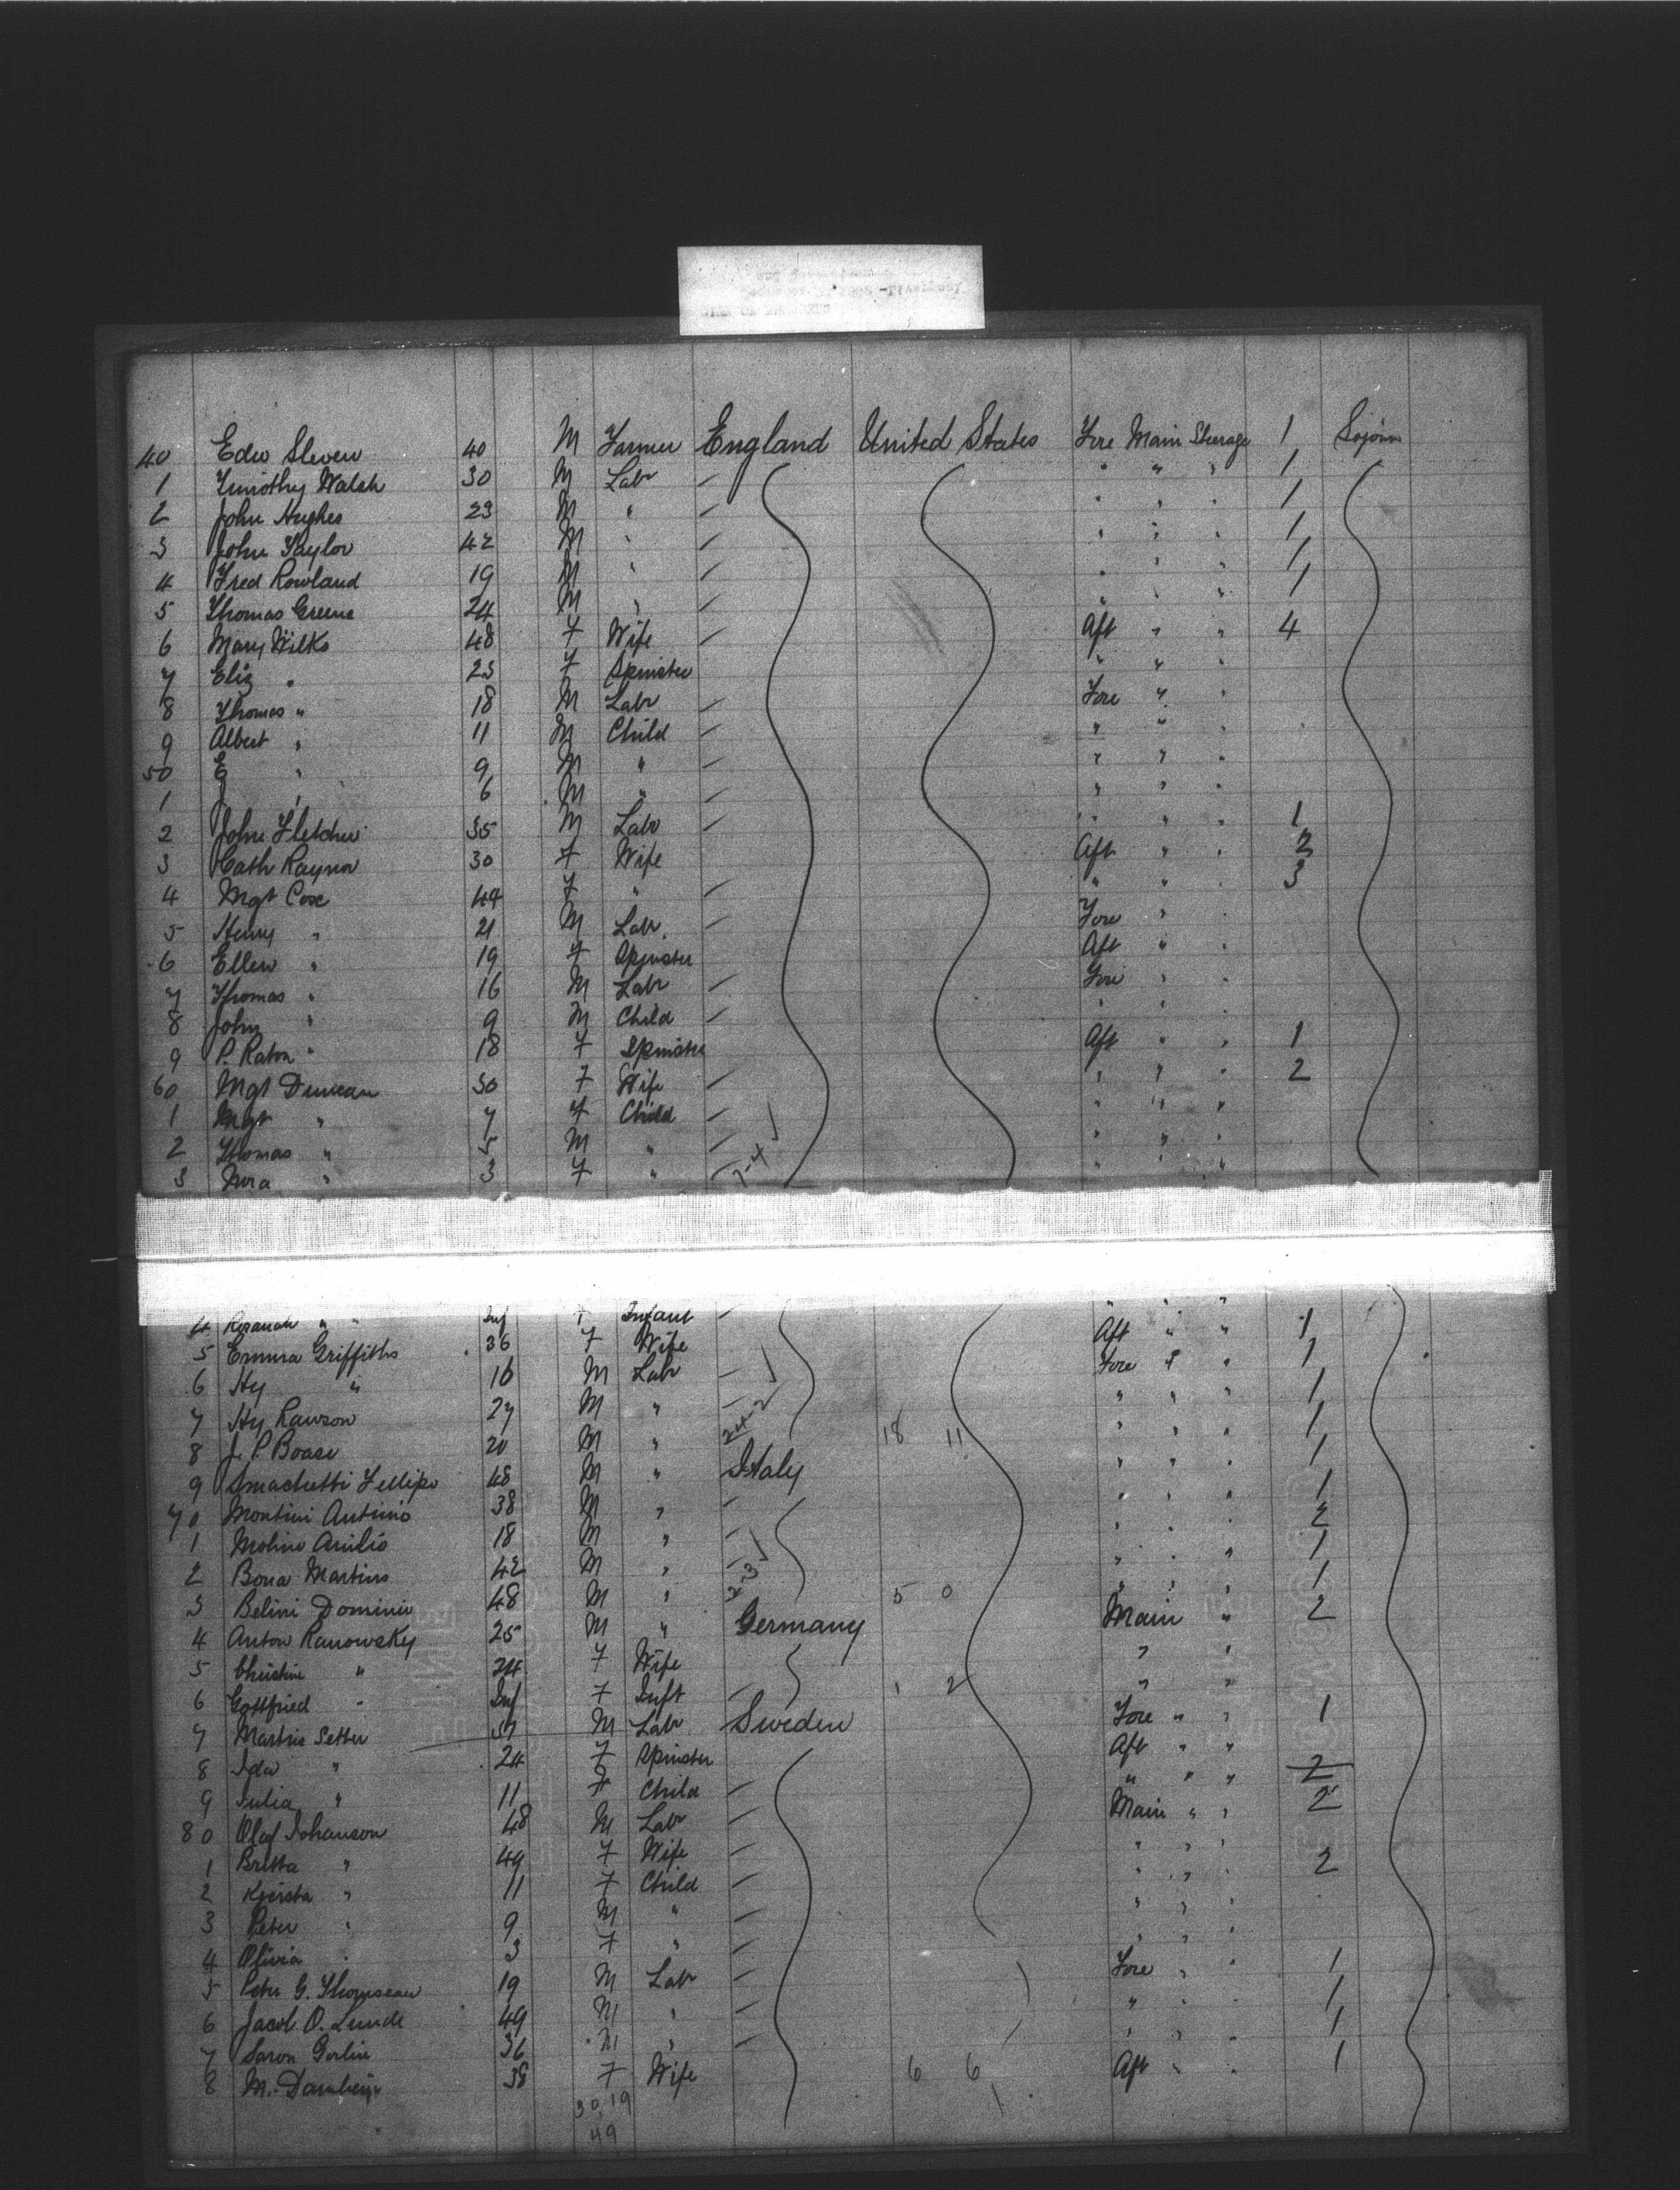 40 Edw Sleven 40 M Farmer England United States Fore Main Steerage 1 Sojourn
1 Timothy Walsh 30 M Labr " " " 1
2 John Hughes 23 M " " " " 1
3 John Taylor 42 M " " " " 1
4 Fred Rowland 19 M " " " " 1
5 Thomas Greene 24 M " " " " 1
6 Mary Wilks 48 F Wife Aft " " 4
7 Eliz " 23 F Spinster " " "
8 Thomas " 18 M Labr Fore " "
9 Albert " 11 M Child " " "
50 E " 9 M " " " "
1 J " 6 M " " " "
2 John Fletcher 35 M Labr " " " 1
3 Cath Raynor 30 F Wife Aft " " 2
4 Mgt Cox 44 F " " " " 3
5 Henry " 21 M Labr Fore " "
6 Ellen " 19 F Spinster Aft " "
7 Thomas " 16 M Labr Fore " "
8 John " 9 M Child " " "
9 P. " 18 F Spinster Aft " " 1
60 Mgt Duncan 30 F Wife " " " 2
1 Mgt " 7 F Child " " "
2 Thomas " 5 M " " " "
3 " 3 F " 7-4 " " "
4 " Inf F Infant " " "
5 Emma Griffiths 36 F Wife Aft " " 1
6 Hy " 16 M Labr Fore " " 1
7 Hy Rawson 27 M " 24-2 " " " 1
8 J. P. Boase 20 M " 18 11 " " " 1
9 48 M " Italy " " " 1
70 Montini Antonio 38 M " " " " 1
1 Molino 18 M " " " " 2
2 Bona Martins 42 M " 2-3 " " " 1
3 Belini Dominio 48 M " 5 0 " " " 1
4 Anton Ranowsky 25 M " Germany Main " 2
5 Christine " 24 F Wife " "
6 Gottfried " Inf F Inft 1 2 " "
7 Martin Setter M Labr Sweden Fore " " 1
8 Ida " 24 F Spinster Aft " "
9 Julia " 11 F Child " " " 2
80 Olaf Johanson 48 M Labr Main " " 2
1 Britta " 49 F Wife " " "
2 Kjersta " 11 F Child " " " 2
3 Peter " 9 M " " " "
4 Olivia " 3 F " " " "
5 Peter G. 19 M Labr Fore " " 1
6 Jacob O. Lunde 49 M " " " " 1
7 36 M " " " " 1
8 M. 38 F Wife 6 6 Aft " " 1
30 19
49